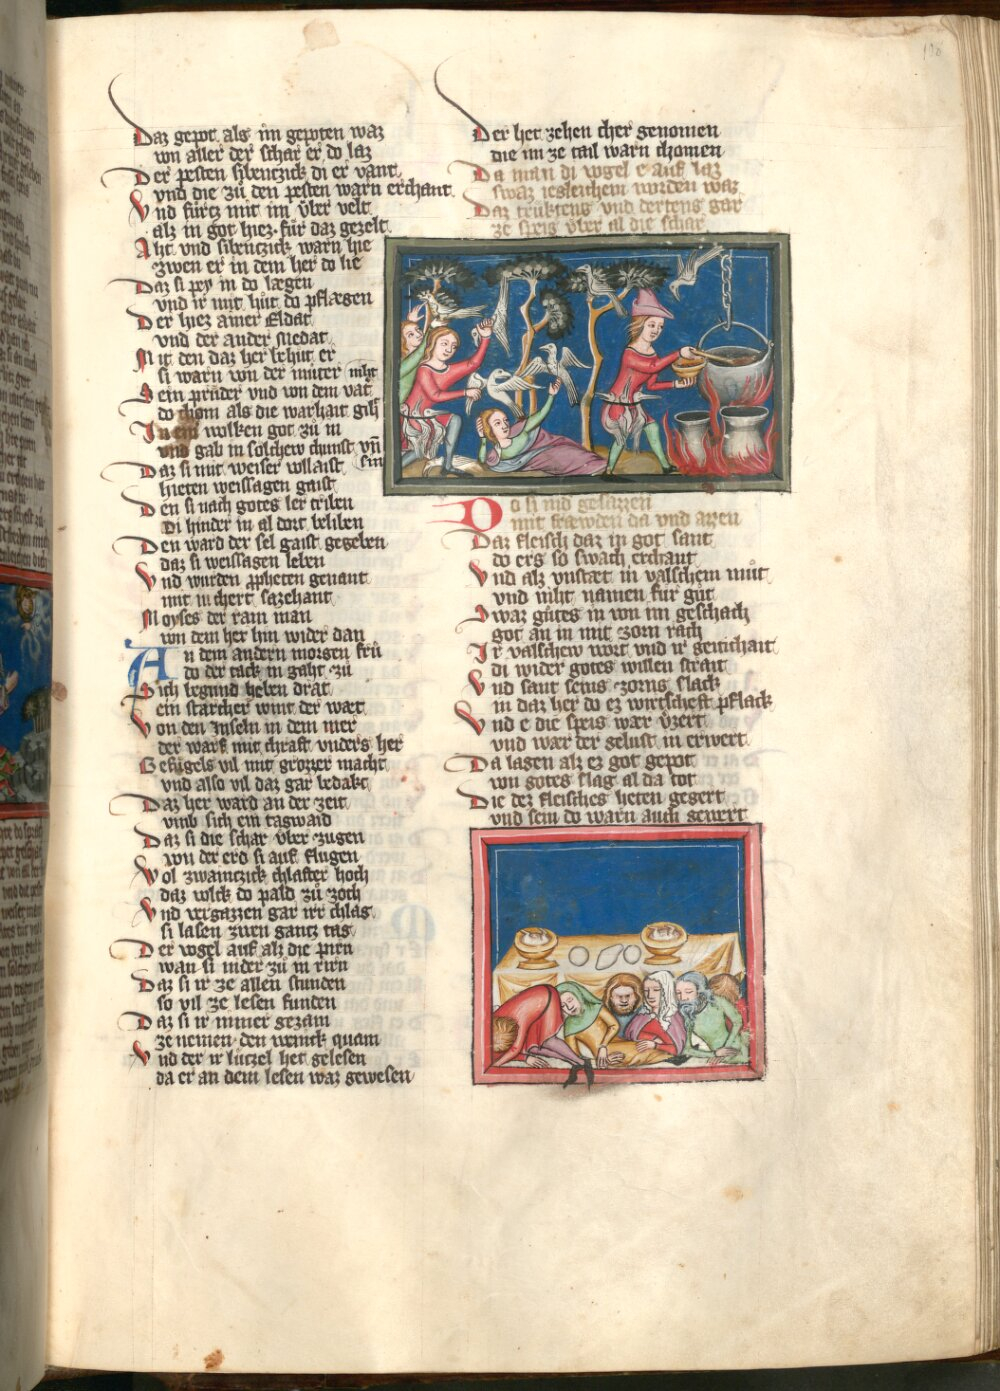 Daz gepot als im gepoten waz
von aller der schar er do laz
Der pesten sibentzick di er vant
vnd die zů den pesten warn erchant
Vnd fůrtz mit im vͤber velt
alz in got hiez fur daz gezelt
Aht vnd sibentzick warn hie
zwen er in dem her do lie
Daz si pey in do lægen
vnd ir mit hůt do pflægen
Der hiez ainer Eldat
vnd der ander Medat
Mit den daz her behut er
si warn von der muter niht
Sein průder vnd von dem vat̄
do chom als die warhait giht
In ein wolken got zů in
vnd gab in solchew chunst vn̄ sin
Daz si mit weiser vollaist
hieten weissagen gaist
Den si nach gotes ler teilen
Di hinder in al dort beliben
Den ward der sel gaist gegeben
daz si weissagen leben
Vnd wurden ꝓpheten genant
mit in chert sazehant
Moyses der rain man
von dem her hin wider dan
An dem andern morgen frů
do der tack in gaht zů
Sich begund heben drat
ein starcher wint der wæt
Von den Inseln in dem mer
der warf mit chraft vnders her
Gefůgels vil mit grozzer macht
vnd also vil daz gar bedakt
Daz her ward an der zeit
vmb sich ein tagwaid
Daz si die schar vͤber zugen
von der erd si auf flugen
Wol zwaintzick chlafter hoch
daz volck do pald zů zoch
Vnd vergazzen gar irr chlag
si lasen zwen gantz tag
Der vogel auf alz die pirn
wan si nider zů in rirn
Daz si ir ze allen stunden
so vil ze lesen funden
Daz si ir immer gezam
ze nemen den wenick quam
Vnd der ir lutzel het gelesen
da er an dem lesen waz gewesen
Der het zehen cher genomen
die im ze tail warn chomen
Da man di vogel e auf laz
swaz iegleichem worden waz
Daz trůktens vnd dertens gar
ze speis vͤber al die schar
Do si nid gesazzen
mit frewden da vnd azzen
Daz fleisch daz in got sant
do ers so swach erchant
Vnd alz vnstæt in valschem můt
vnd niht namen fur gůt
Swaz gůtes in von im geschach
got an in mit zorn rach
Ir valschew wort vnd ir getichait
di wider gotes willen strait
Vnd sant seins zorns slack
in daz her do ez wirtscheft pflack
Vnd e die speis wær vͤzert
vnd war der gelust in erwert
Da lagen alz ez got gepot
von gotes slag al da tot
Die dez fleisches heten gegert
vnd sein do warn auch gewert